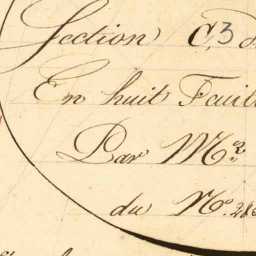 Section C, 3
En huit Feuil
Par Mr.
du No. 28